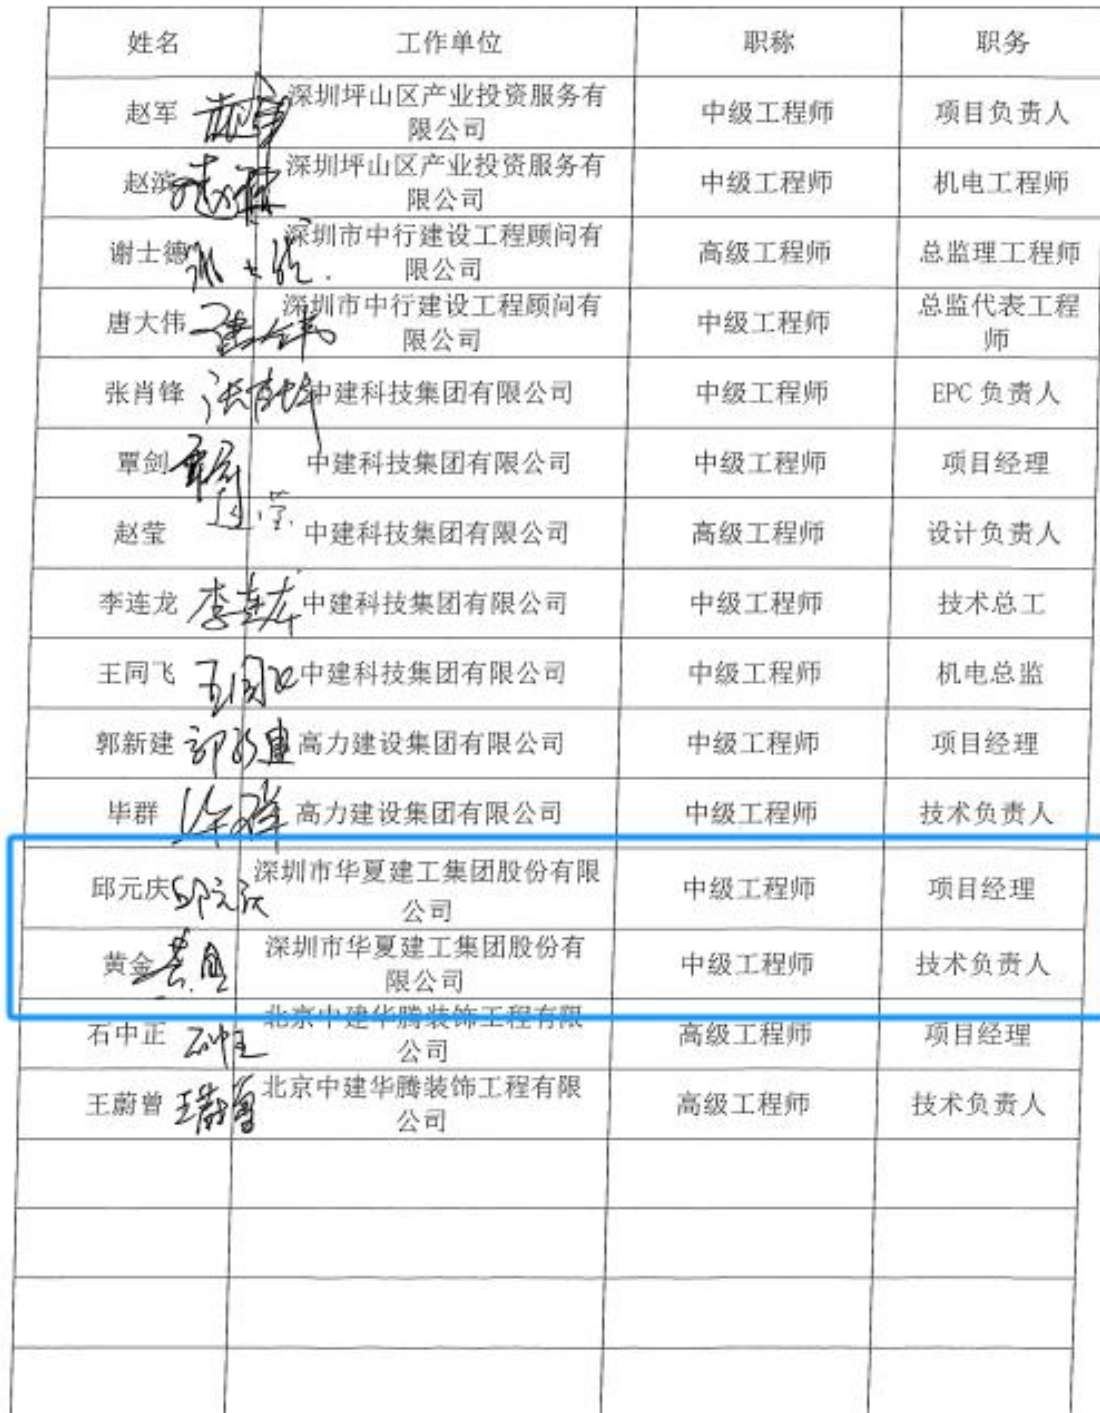 姓名 工作单位 职称 职务
赵军 深圳坪山区产业投资服务有 中级工程师 项目负责人
限公司
赵滨 深圳坪山区产业投资服务有 中级工程师 机电工程师
限公司
谢士德 深圳市中行建设工程顾问有 高级工程师 总监理工程师
限公司
唐大伟 深圳市中行建设工程顾问有 中级工程师 总监代表工程
限公司 师
张肖锋 张肖锋 中建科技集团有限公司 中级工程师 EPC 负责人
覃剑 中建科技集团有限公司 中级工程师 项目经理
赵莹 中建科技集团有限公司 高级工程师 设计负责人
李连龙 李连龙 中建科技集团有限公司 中级工程师 技术总工
王同飞 王同飞 中建科技集团有限公司 中级工程师 机电总监
郭新建 郭新建 高力建设集团有限公司 中级工程师 项目经理
毕群 高力建设集团有限公司 中级工程师 技术负责人
邱元庆 邱元庆 深圳市华夏建工集团股份有限 中级工程师 项目经理
公司
黄金 黄金 深圳市华夏建工集团股份有 中级工程师 技术负责人
限公司
石中正 石中正 北京中建华腾装饰工程有限 高级工程师 项目经理
公司
王蔚曾 王蔚曾 北京中建华腾装饰工程有限 高级工程师 技术负责人
公司